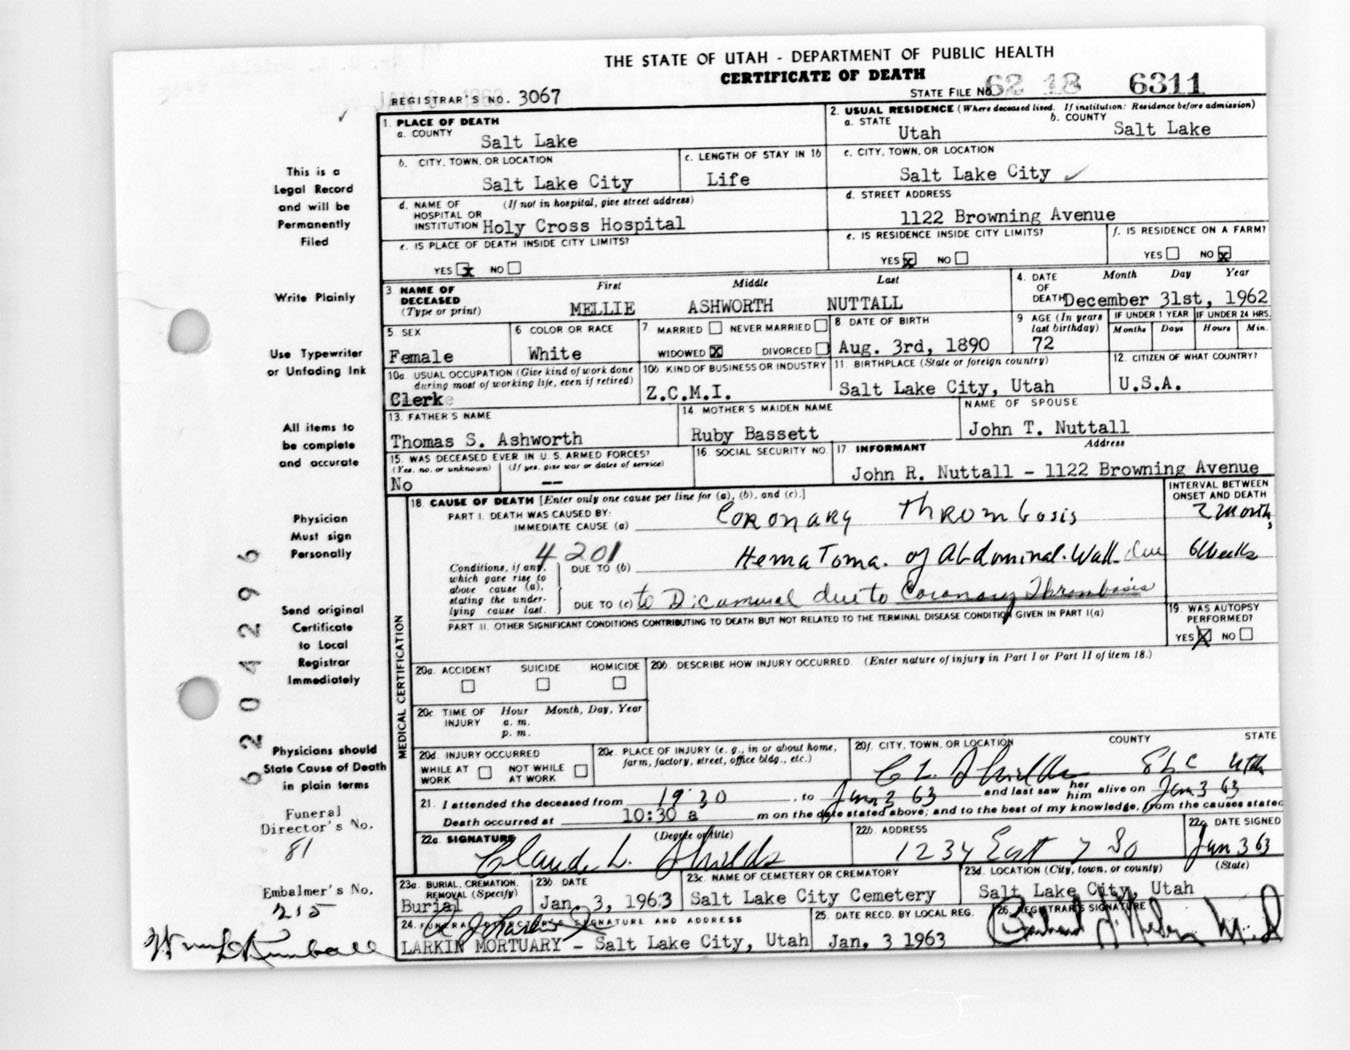 THE STATE OF UTAH - DEPARTMENT OF PUBLIC HEALTH
CERTIFICATE OF DEATH
REGISTRAR'S NO. 3067
STATE FILE NO. 62 18 6311
1. PLACE OF DEATH
a. COUNTY
Salt Lake
2. USUAL RESIDENCE (Where deceased lived. If institution: Residence before admission)
a. STATE
Utah
b. COUNTY
Salt Lake
b. CITY, TOWN, OR LOCATION
Salt Lake City
c. LENGTH OF STAY IN 1b
Life
c. CITY, TOWN, OR LOCATION
Salt Lake City
d. NAME OF (If not in hospital, give street address)
HOSPITAL OR
INSTITUTION Holy Cross Hospital
d. STREET ADDRESS
1122 Browning Avenue
e. IS PLACE OF DEATH INSIDE CITY LIMITS?
YES x NO
e. IS RESIDENCE INSIDE CITY LIMITS?
YES x NO
f. IS RESIDENCE ON A FARM?
YES NO x
3 NAME OF
DECEASED
(Type or print)
First Middle Last
MELLIE ASHWORTH NUTTALL
4. DATE
OF
DEATH
Month Day Year
December 31st, 1962
5. SEX
Female
6 COLOR OR RACE
White
7 MARRIED NEVER MARRIED
WIDOWED x DIVORCED
8 DATE OF BIRTH
Aug. 3rd, 1890
9 AGE (In years
last birthday)
72
IF UNDER 1 YEAR
Months Days
IF UNDER 24 HRS.
Hours Min.
10a. USUAL OCCUPATION (Give kind of work done
during most of working life, even if retired)
Clerk
10b. KIND OF BUSINESS OR INDUSTRY
Z.C.M.I.
11. BIRTHPLACE (State or foreign country)
Salt Lake City, Utah
12. CITIZEN OF WHAT COUNTRY?
U.S.A.
13. FATHER'S NAME
Thomas S. Ashworth
14. MOTHER'S MAIDEN NAME
Ruby Bassett
NAME OF SPOUSE
John T. Nuttall
15. WAS DECEASED EVER IN U.S. ARMED FORCES?
(Yes, no, or unknown) (If yes, give war or dates of service)
No --
16. SOCIAL SECURITY NO.
17 INFORMANT Address
John R. Nuttall - 1122 Browning Avenue
MEDICAL CERTIFICATION
18. CAUSE OF DEATH [Enter only one cause per line for (a), (b), and (c).]
INTERVAL BETWEEN
ONSET AND DEATH
PART I. DEATH WAS CAUSED BY:
IMMEDIATE CAUSE (a) Coronary Thrombosis 2 months
4201
Conditions, if any,
which gave rise to
above cause (a),
stating the under-
lying cause last.
DUE TO (b) Hematoma. of Abdominal. Wall due 6 weeks
DUE TO (c) to Dicumerol due to Coronary Thrombosis
PART II. OTHER SIGNIFICANT CONDITIONS CONTRIBUTING TO DEATH BUT NOT RELATED TO THE TERMINAL DISEASE CONDITION GIVEN IN PART I(a)
19. WAS AUTOPSY
PERFORMED?
YES X NO
20a. ACCIDENT SUICIDE HOMICIDE
20b. DESCRIBE HOW INJURY OCCURRED. (Enter nature of injury in Part I or Part II of item 18.)
20c. TIME OF
INJURY
Hour Month, Day, Year
a. m.
p. m.
20d. INJURY OCCURRED
WHILE AT
WORK
NOT WHILE
AT WORK
20e. PLACE OF INJURY (e. g., in or about home,
farm, factory, street, office bldg., etc.)
20f. CITY, TOWN, OR LOCATION COUNTY STATE
C L Shields SLC Utah
21. I attended the deceased from 1930, to Jan 3 63 and last saw her him alive on Jan 3 63
Death occurred at 10:30 a m on the date stated above; and to the best of my knowledge, from the causes stated
22a. SIGNATURE (Degree or title)
Claude L. Shields
22b. ADDRESS
1234 East 7 So
22c. DATE SIGNED
Jan 3 63
23a. BURIAL, CREMATION,
REMOVAL (Specify)
Burial
23b. DATE
Jan. 3, 1963
23c. NAME OF CEMETERY OR CREMATORY
Salt Lake City Cemetery
23d. LOCATION (City, town, or county) (State)
Salt Lake City, Utah
24. FUNERAL DIRECTOR'S SIGNATURE AND ADDRESS
LARKIN MORTUARY - Salt Lake City, Utah
25. DATE RECD. BY LOCAL REG.
Jan. 3 1963
26. REGISTRAR'S SIGNATURE
This is a
Legal Record
and will be
Permanently
Filed
Write Plainly
Use Typewriter
or Unfading Ink
All items to
be complete
and accurate
Physician
Must sign
Personally
Send original
Certificate
to Local
Registrar
Immediately
Physicians should
State Cause of Death
in plain terms
Funeral
Director's No.
81
Embalmer's No.
215
62204296